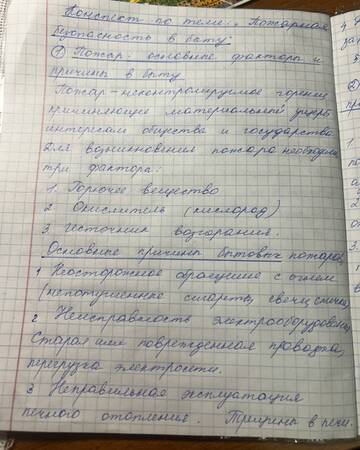 Конспект по теме: „Пожарная
безопасность в быту."
① Пожар: основные факторы и
причины в быту
Пожар - неконтролируемое горение,
причиняющее материальный ущерб
интересам общества и государства
Для возникновения пожара необходимы
три фактора:
1. Горючее вещество
2. Окислитель (кислород)
3. Источник возгорания.
Основные причины бытовых пожаров
1 Неосторожное обращение с огнем
(непотушенные сигареты, свечи, спички
2 Неисправность электрооборудования,
Старая или поврежденная проводка,
перегрузка электросети.
3 Неправильная эксплуатация
печного отопления. Трещины в печи.